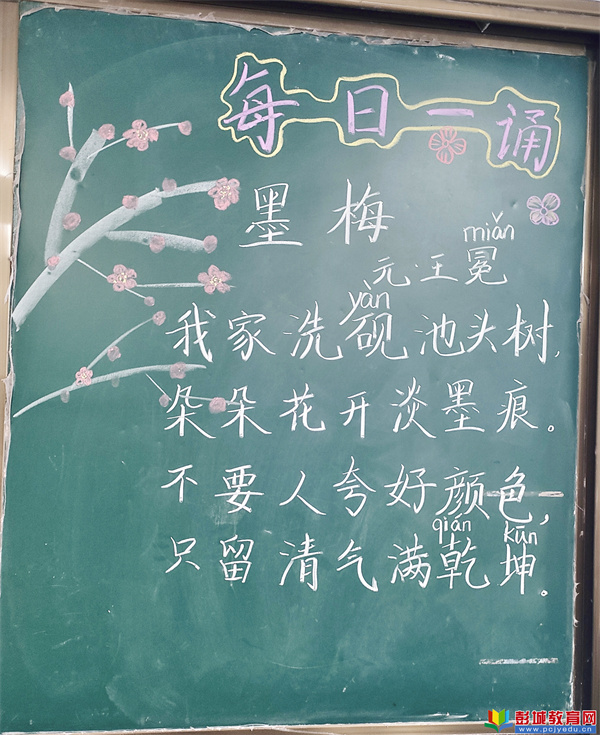 每日一诵
墨梅
miǎn
元·王冕
yàn
我家洗砚池头树，
朵朵花开淡墨痕。
不要人夸好颜色，
qián kūn
只留清气满乾坤。
彭城教育网
www.pcjyedu.cn